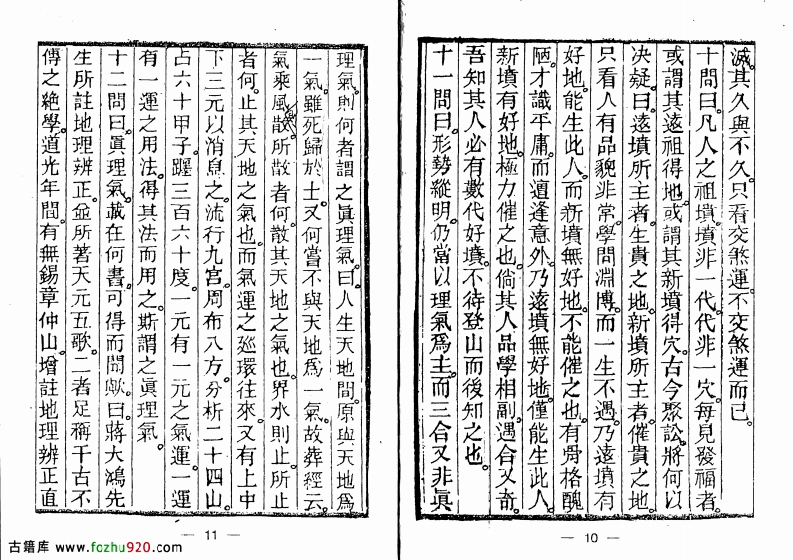 滅。其久與不久。只看交煞運。不交煞運而已。
十問曰。凡人之祖墳。墳非一代。代非一穴。每見發福者。
或謂其遠祖得地。或謂其新墳得穴。古今聚訟。將何以
决疑。曰。遠墳所主者。生貴之地。新墳所主者。催貴之地。
只看人有品貌非常。學問淵博。而一生不遇。乃遠墳有
好地。能生此人。而新墳無好地。不能催之也。有骨格醜
陋。才識平庸。而遭逢意外。乃遠墳無好地。僅能生此人。
新墳有好地。極力催之也。倘其人品學相副。遇合又奇。
吾知其人必有數代好墳。不待登山而後知之也。
十一問曰。形勢縱明。仍當以理氣爲主。而三合又非眞
— 10 —
理氣。則何者謂之眞理氣。曰。人生天地間。原與天地爲
一氣。雖死歸於土。又何嘗不與天地爲一氣。故葬經云。
氣乘風散。所散者何。散其天地之氣也。界水則止。所止
者何。止其天地之氣也。而氣運之廵環往來。又有上中
下三元以消息之。流行九宮。周布八方。分析二十四山。
占六十甲子。躔三百六十度。一元有一元之氣運。一運
有一運之用法。得其法而用之。斯謂之眞理氣。
十二問曰。眞理氣。載在何書。可得而聞歟。曰。蔣大鴻先
生所註地理辨正。並所著天元五歌。二者足稱千古不
傳之絶學。道光年間。有無錫章仲山。增註地理辨正直
— 11 —
古籍库 www.fozhu920.com